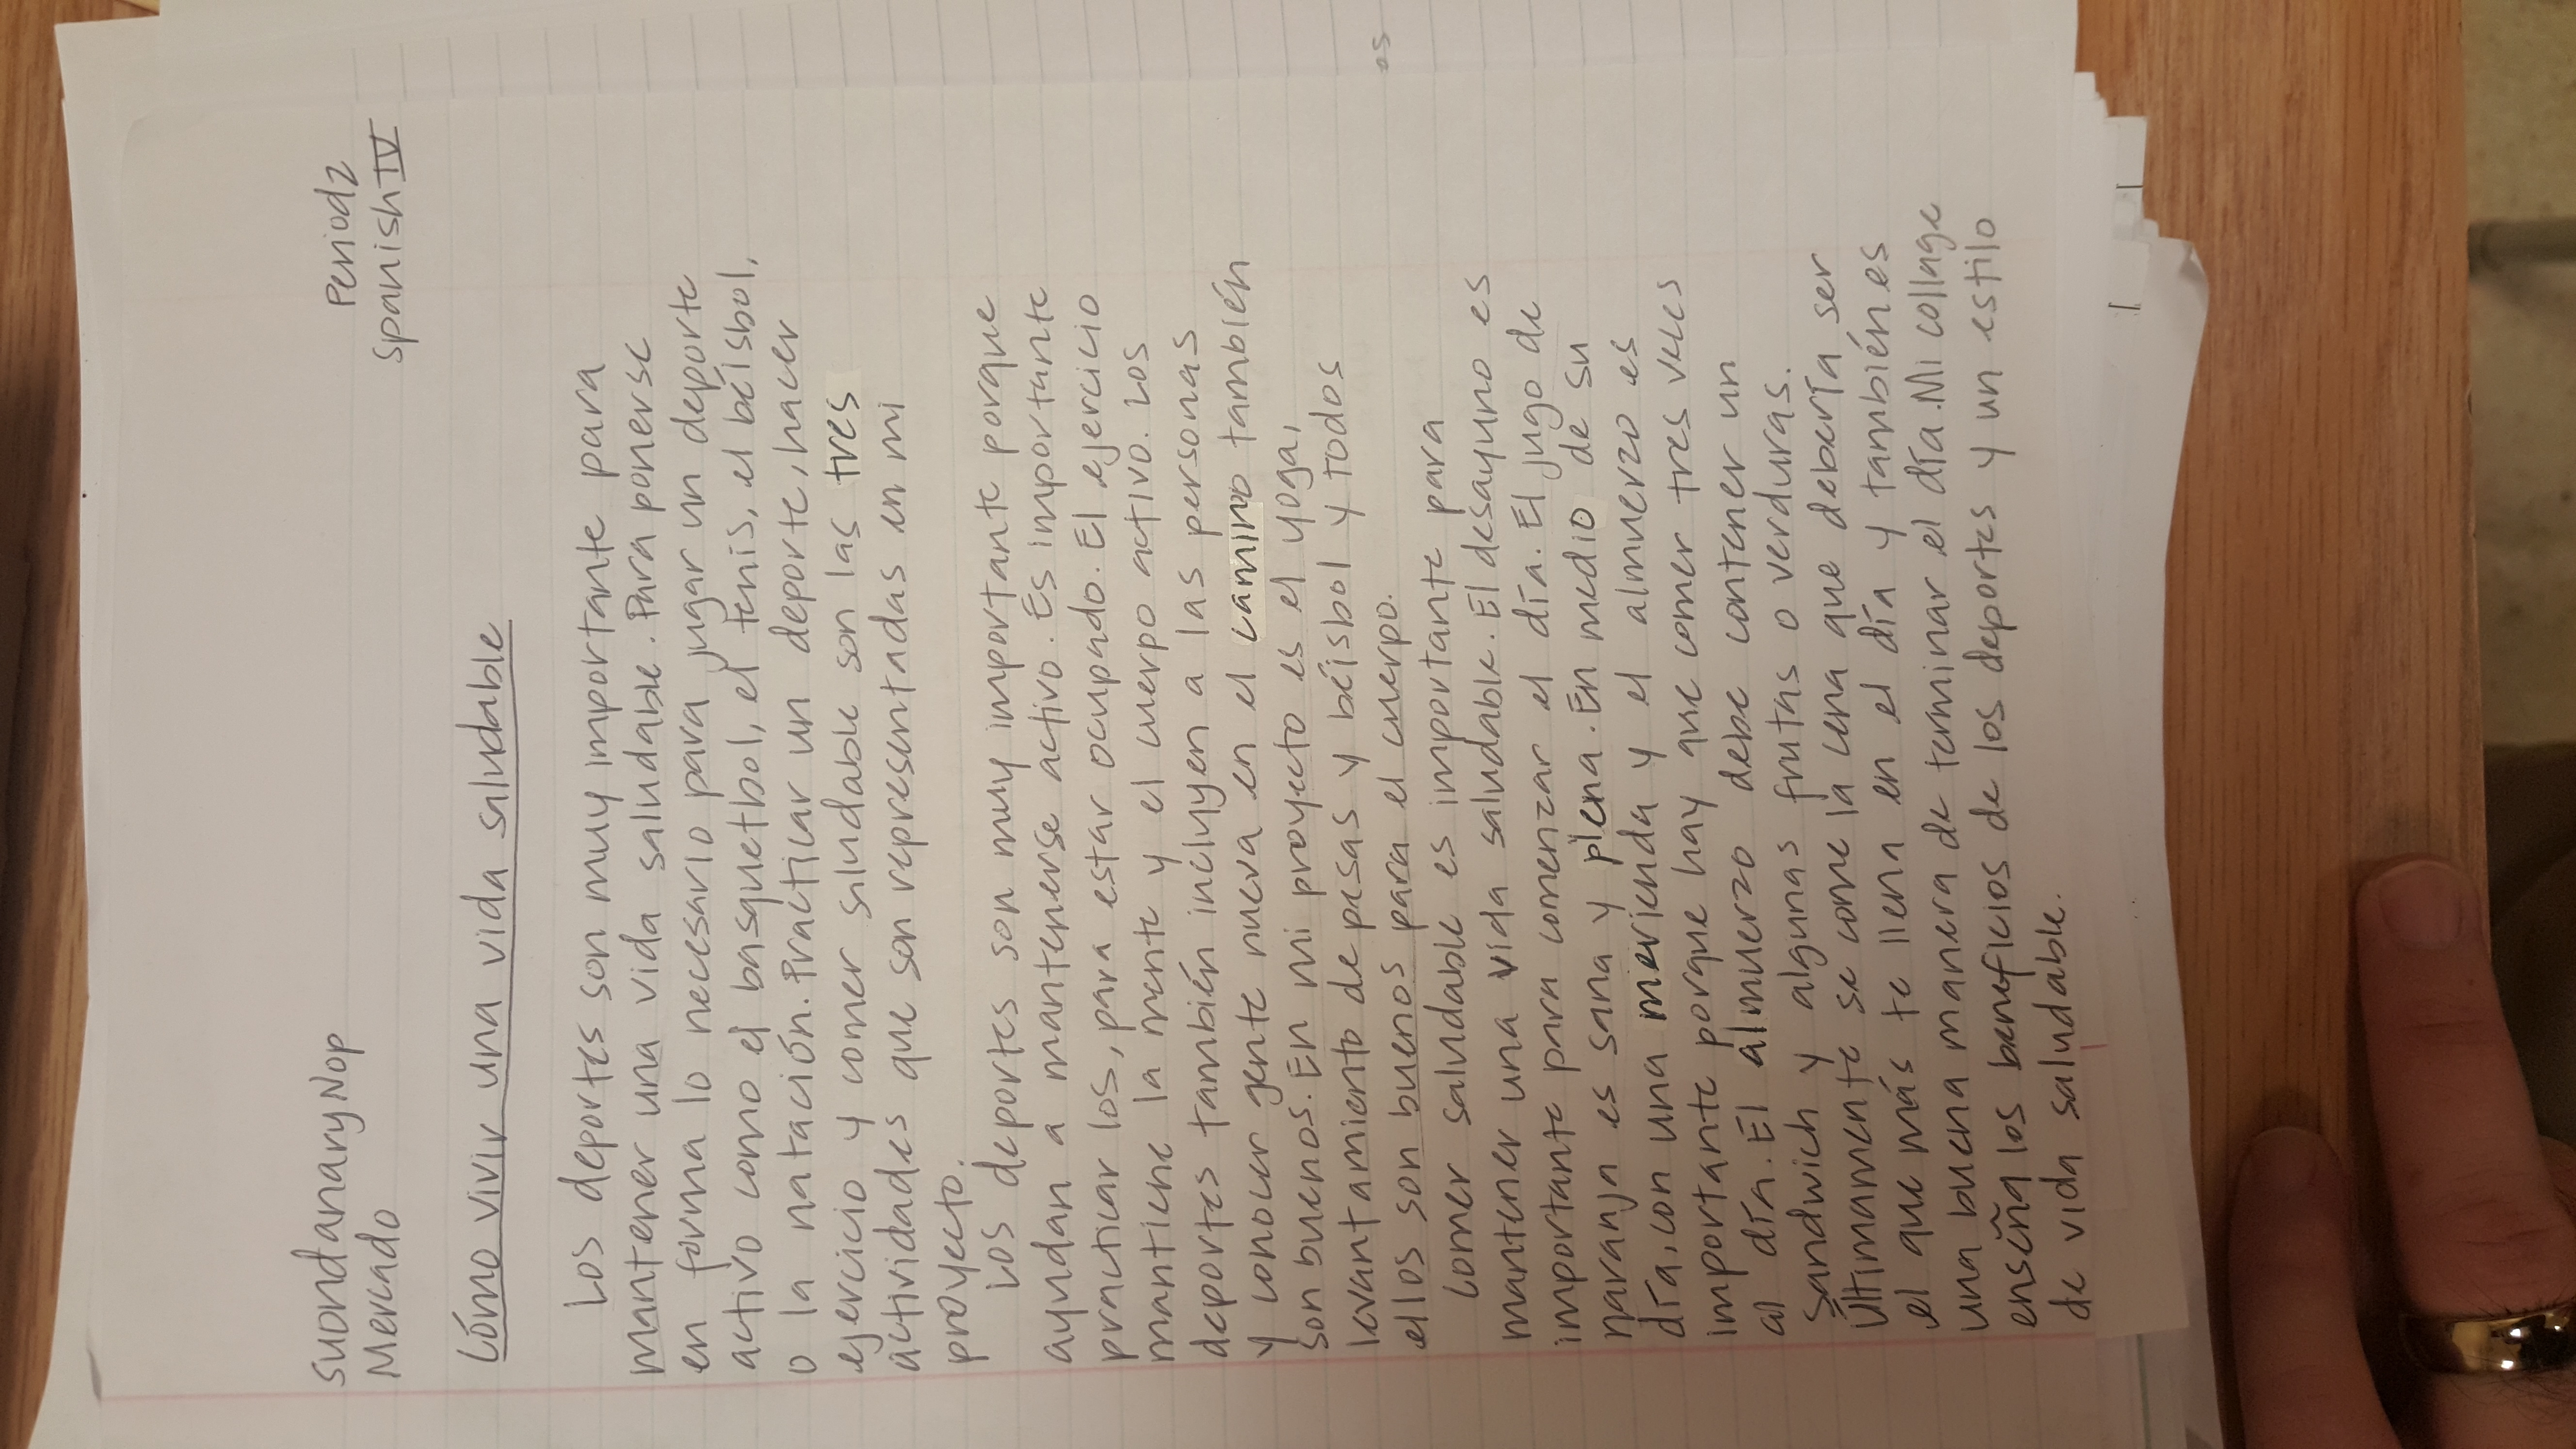 Suondanary Nop
Period 2
Mercado
Spanish IV
Cómo vivir una vida saludable
Los deportes son muy importante para
mantener una vida saludable. Para ponerse
en forma lo necesario para jugar un deporte
activo como el basquetbol, el tenis, el béisbol,
o la natación. Practicar un deporte, hacer
ejercicio y comer saludable son las tres
actividades que son representadas en mi
proyecto.
Los deportes son muy importante porque
ayudan a mantenerse activo. Es importante
practicar los, para estar ocupado. El ejercicio
mantiene la mente y el cuerpo activo. Los
deportes también incluyen a las personas
y conocer gente nueva en el camino también
son buenos. En mi proyecto es el yoga,
levantamiento de pesas y béisbol y todos
ellos son buenos para el cuerpo.
Comer saludable es importante para
mantener una vida saludable. El desayuno es
importante para comenzar el día. El jugo de
naranja es sana y plena. En medio de su
día, con una mierienda y el almuerzo es
importante porque hay que comer tres veces
al día. El almuerzo debe contener un
sandwich y algunas frutas o verduras.
Últimamente se come la cena que debería ser
el que más te llena en el día y también es
una buena manera de terminar el día. Mi collage
enseña los beneficios de los deportes y un estilo
de vida saludable.
os